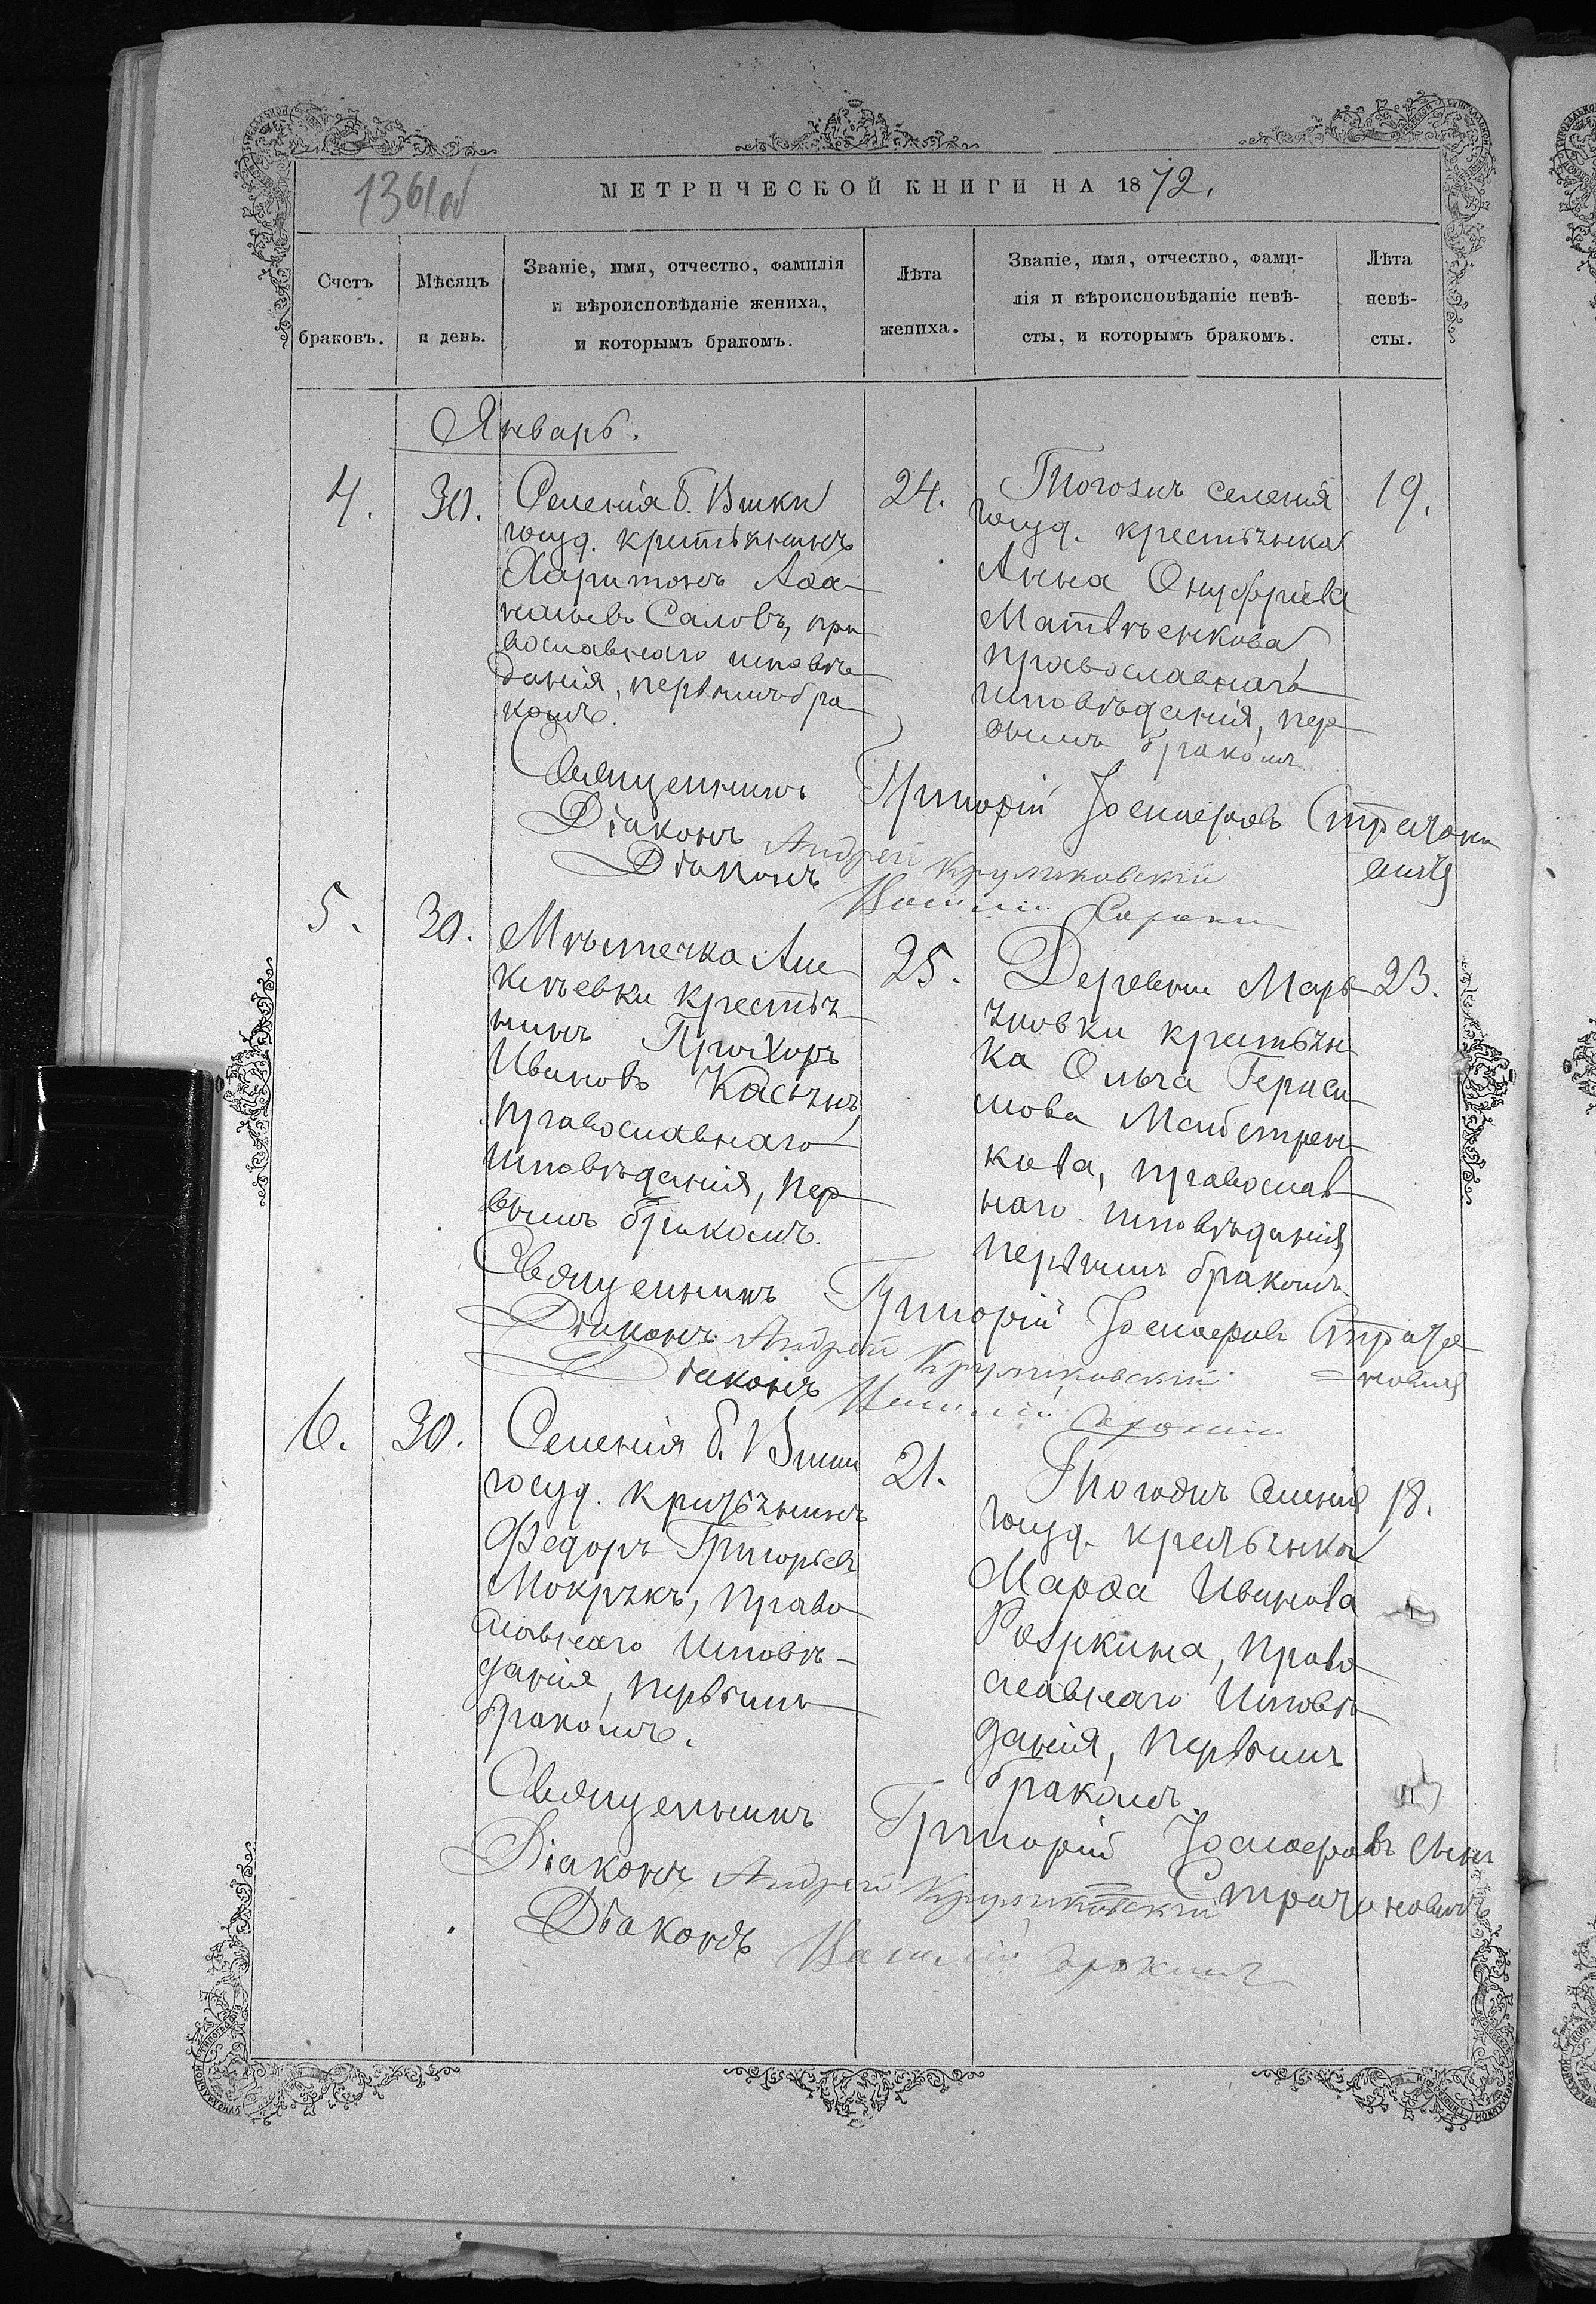 1361об
МЕТРИЧЕСКОЙ КНИГИ НА 1872.
Счетъ браковъ.
Мѣсяцъ и день.
Званіе, имя, отчество, фамилія
и вѣроисповѣданіе жениха,
и которымъ бракомъ.
Лѣта жениха.
Званіе, имя, отчество, фами-
лія и вѣроисповѣданіе невѣ-
сты, и которымъ бракомъ.
Лѣта невѣ-
сты.
Январь.
4.
30.
Селенія б. Виски
госуд. крестьянинъ
Харитонъ Аѳа-
насьевъ Саловъ, пра-
вославнаго исповѣ-
данія, первымъ бра-
комъ.
24.
Тогожъ селенія
госуд. крестьянка
Анна Онуфріева
Матвѣенкова,
православнаго
исповѣданія, пер-
вымъ бракомъ
19.
Священникъ Григорій Іосифовъ
Діаконъ Андрей Круликовскій
Діаконъ Василій
5.
30.
Мѣстечка Але-
ксѣевки крестья-
нинъ Прохоръ
Ивановъ Касьянъ,
православнаго
исповѣданія, пер-
вымъ бракомъ.
25.
Деревни Марь-
яновки крестьян-
ка Ольга Гераси-
мова
кова, православ-
наго исповѣданія,
первымъ бракомъ
23.
Священникъ Григорій Іосифовъ
Діаконъ Андрей Круликовскій
Діаконъ Василій
6.
30.
Селенія б. Виски
госуд. крестьянинъ
Ѳедоръ Григорьевъ
Мокрякъ, право-
славнаго исповѣ-
данія, первымъ
бракомъ.
21.
Тогожъ селенія
госуд. крестьянка
Марѳа Иванова
православнаго исповѣ-
данія, первымъ
бракомъ.
18.
Священникъ Григорій Іосифовъ
Діаконъ Андрей Круликовскій
Діаконъ Василій